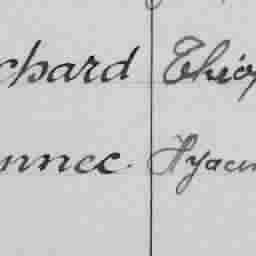 chard Théop
nnec Hyacin